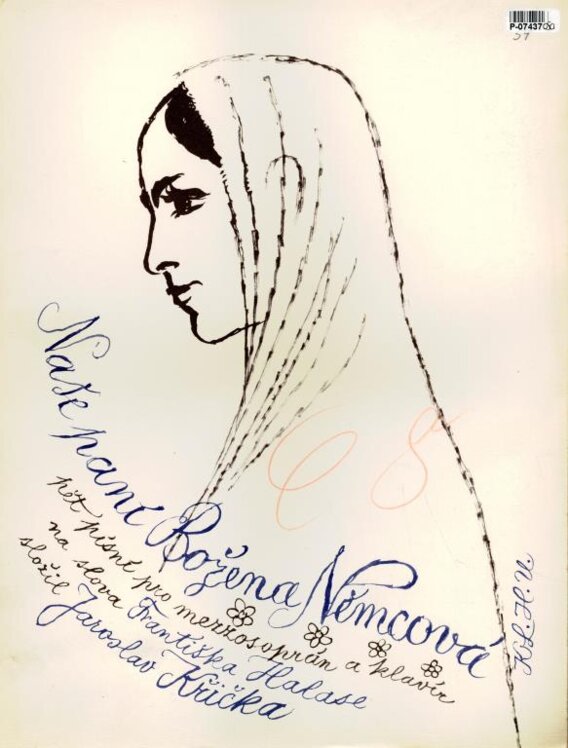 Naše paní Božena Němcová
pět písní pro mezzosoprán a klavír
na slova Františka Halase
složil Jaroslav Křička